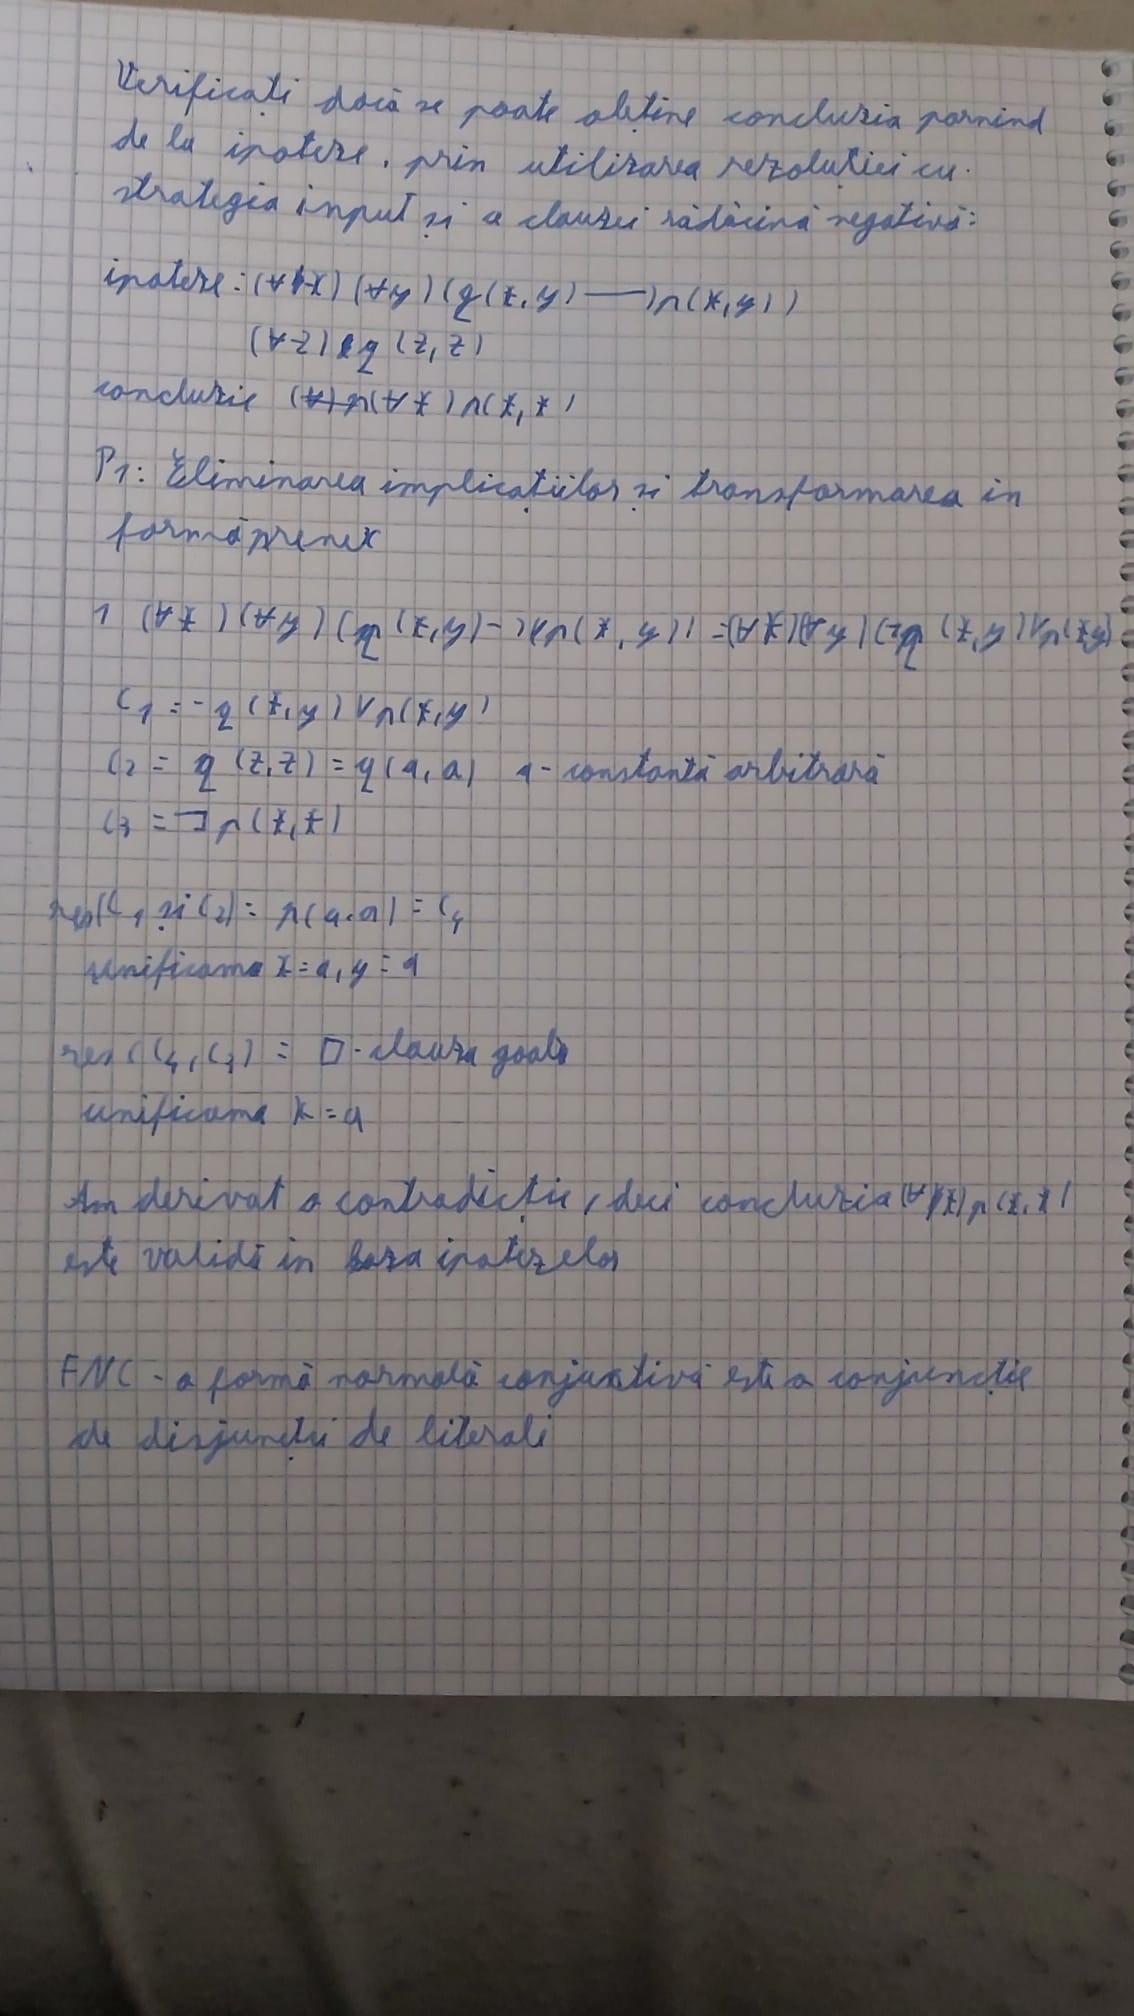 Verificați dacă se poate obține concluzia pornind
de la ipoteze, prin utilizarea rezoluției cu
strategia input și a clauzei rădăcină negativă:
ipoteze: (∀x) (∀y) (q(x,y) → p(x,y))
(∀z) q (z,z)
concluzie (∀x) p(x,x)
P1: Eliminarea implicațiilor și transformarea in
formă prenex
1 (∀x) (∀y) (q (x,y) → p(x,y)) = (∀x)(∀y) (¬q (x,y) ∨ p(x,y)
C1 = ¬q (x,y) ∨ p(x,y)
C2 = q (z,z) = q(a,a) a - constantă arbitrară
C3 = ¬p(x,x)
res(C1 și C2) = p(a,a) = C4
unificama x=a, y=a
res (C4, C3) = □ - clauza goală
unificama x=a
Am derivat o contradicție, deci concluzia (∀x) p(x,x)
este validă in baza ipotezelor
FNC - o formă normală conjunctivă este o conjuncție
de disjuncții de literali